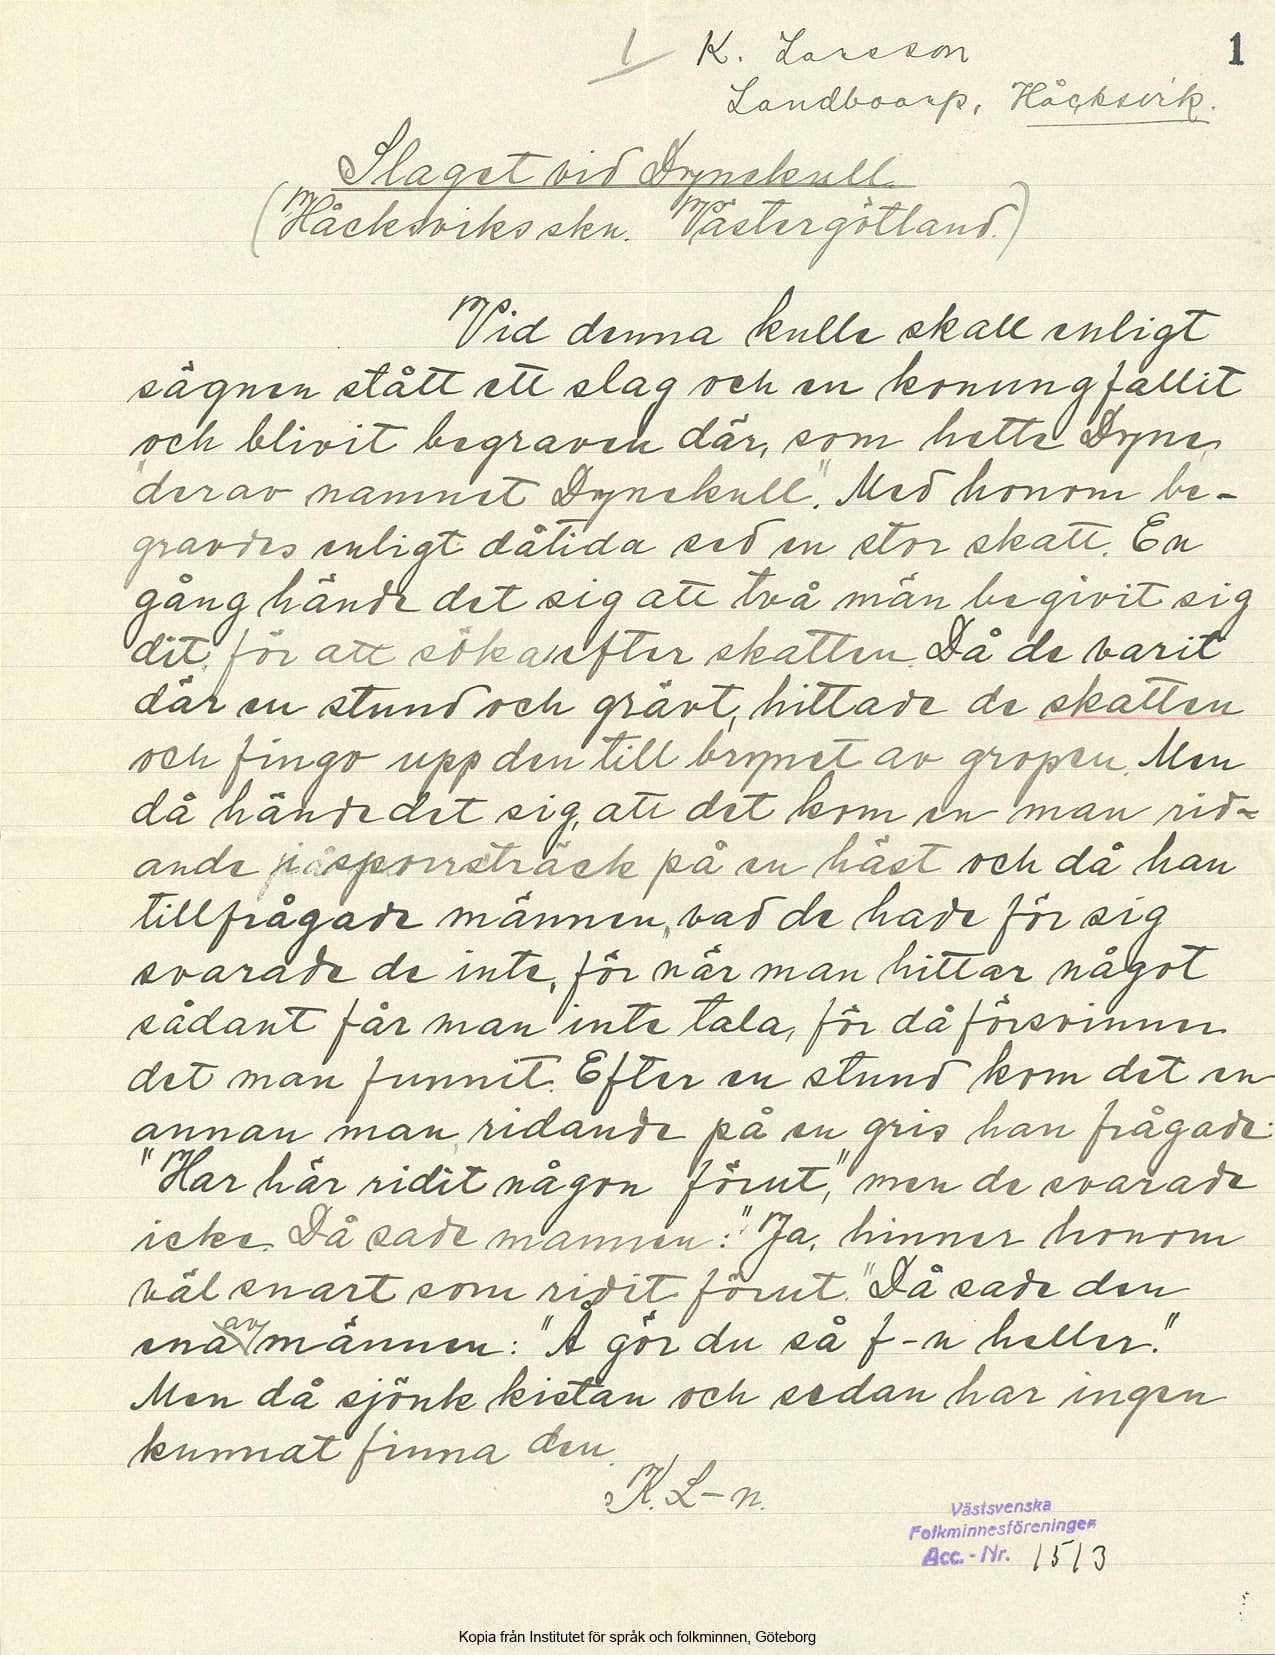 1 K. Larsson 1
Landboarp, Håcksvik.
Slaget vid Dynekull.
(Håcksviks skn. Västergötland.)
Vid denna kulle skall enligt
sägnen stått ett slag och en konung fallit
och blivit begraven där, som hette Dyne,
"derav namnet Dynekull". Med honom be-
gravdes enligt dåtida sed en stor skatt. En
gång hände det sig att två män begivit sig
dit för att söka efter skatten. Då de varit
där en stund och grävt, hittade de skatten
och fingo upp den till brynet av gropen. Men
då hände det sig, att det kom en man rid-
ande i sporrsträck på en häst och då han
tillfrågade männen, vad de hade för sig
svarade de inte, för när man hittar något
sådant får man inte tala, för då försvinner
det man funnit. Efter en stund kom det en
annan man, ridande på en gris han frågade:
"Har här ridit någon förut," men de svarade
icke. Då sade mannen: "Ja, hinner honom
väl snart som ridit förut." Då sade den
ena av männen: "Å gör du så f-n heller."
Men då sjönk kistan och sedan har ingen
kunnat finna den.
K. L-n.
Västsvenska
Folkminnesföreningen
Acc.-Nr. 1513
Kopia från Institutet för språk och folkminnen, Göteborg